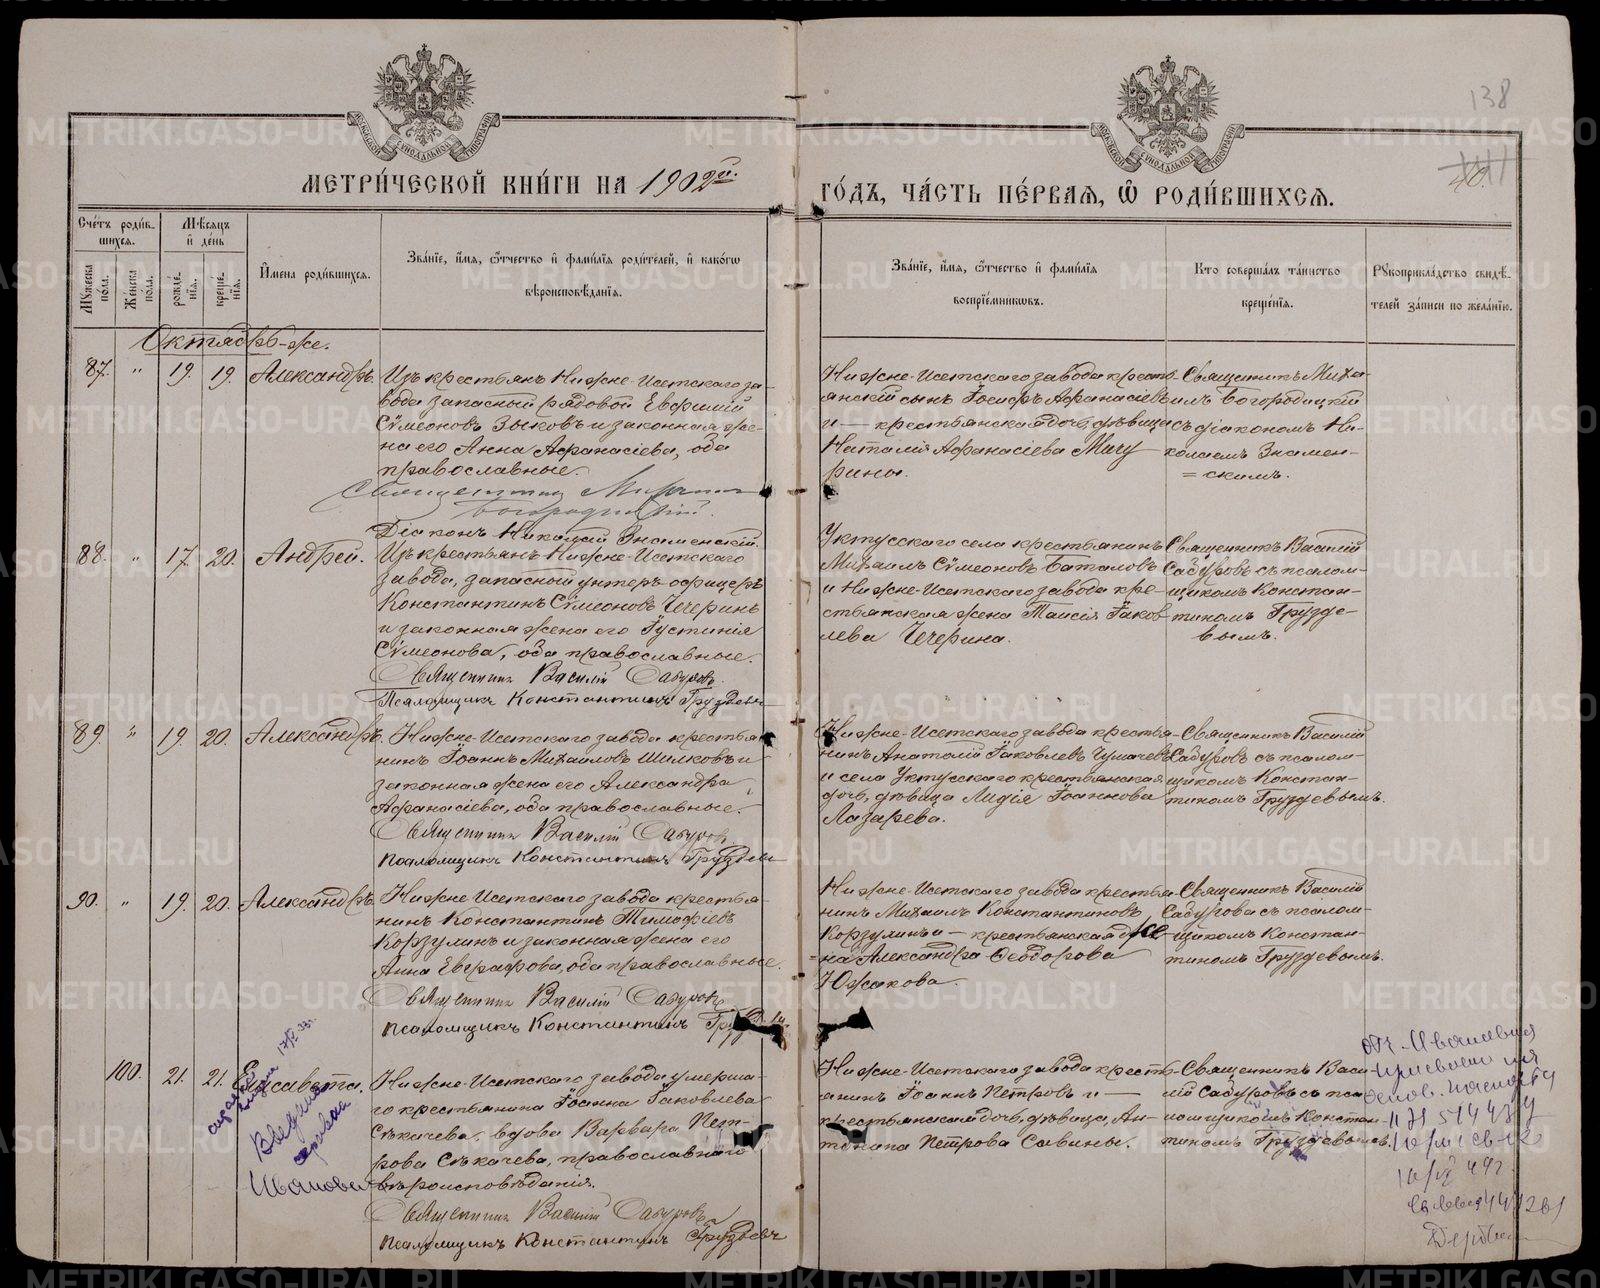 138
МЕТРИ́ЧЕСКОЙ КНИ́ГИ НА 1902й.
ГО́ДЪ, ЧА́СТЬ ПЕ́РВАЯ, Ѡ РОДИ́ВШИХСЯ.
Сче́тъ роди́в-
шихся.
Мѣ́сяцъ
и де́нь
Му́жеска
по́ла.
Же́нска
по́ла.
рожде́-
нїя.
креще́-
нїя.
И҆мена роди́вшихся.
Зва́нїе, и҆мя, ѻ҆́тчество и҆ фами́лїя роди́телей, и҆ како́гѡ
вѣроисповѣ́данїя.
Зва́нїе, и҆мя, ѻ҆́тчество и҆ фами́лїя
воспрїе́мниковъ.
Кто соверша́лъ та́инство
креще́нїя.
Рꙋкоприкла́дство свидѣ́-
телей за́писи по жела́нїю.
Октябрь-же.
87. " 19. 19. Александръ.
Изъ крестьянъ Нижне-Исетскаго за-
вода запасный рядовой Евфимій
Сѷмеоновъ Зыковъ и законная же-
на его Анна Афанасіева, оба
православные.
Священникъ Михаилъ
Богородицкій.
Діаконъ Николай Знаменскій.
Нижне-Исетскаго завода кресть-
янскій сынъ Іосифъ Афанасіевъ
и — крестьянская дочь, дѣвица
Наталія Афанасіева Мичу
рины.
Священникъ Миха-
илъ Богородицкій
съ діакономъ Ни-
колаемъ Знамен-
= скимъ.
88. " 17. 20. Андрей.
Изъ крестьянъ Нижне-Исетскаго
завода, запасный унтеръ-офицеръ
Константинъ Сѷмеоновъ Чечеринъ
и законная жена его Іустинія
Сѷмеонова, оба православные.
Священникъ Василій Сабуровъ.
Псаломщикъ Константинъ Груздевъ
Уктусского села крестьянинъ
Михаилъ Сѷмеоновъ Баталовъ
и Нижне-Исетскаго завода кре-
стьянская жена Таисія Іаков
лева Чечерина.
Священникъ Василій
Сабуровъ съ псалом-
щикомъ Констан-
тиномъ Груздe-
вымъ.
89. " 19. 20. Александръ.
Нижне-Исетскаго завода крестья-
нинъ Іоаннъ Михаиловъ Шилковъ и
законная жена его Александра
Афанасіева, оба православные.
Священникъ Василій Сабуровъ
псаломщикъ Константинъ Груздевъ
Нижне-Исетскаго завода крестья-
нинъ Анатолій Іаковлевъ
и села Уктусскаго крестьянская
дочь, дѣвица Лидія Іоаннова
Лазарева.
Священникъ Василій
Сабуровъ съ псалом-
щикомъ Констан-
тиномъ Груздевымъ.
90. " 19. 20. Александръ
Нижне-Исетскаго завода крестья-
нинъ Константинъ Тимофіевъ
Корзулинъ и законная жена его
Анна Евграфова, оба православные.
Священникъ Василій Сабуровъ
псаломщикъ Константинъ
Нижне-Исетскаго завода крестья-
нинъ Михаилъ Константиновъ
Корзулинъ и — крестьянская же-
=на Александра Ѳеодорова
Южакова.
Священникъ Василій
Сабуровъ съ псалом-
щикомъ Констан-
тиномъ Груздевымъ.
100. 21. 21. Елисавета.
Нижне-Исетскаго завода умерша-
го крестьянина Іоанна Іаковлева
Сѣкачева, вдова Варвара Пет-
рова Сѣкачева, православнаго
вѣроисповѣданія.
Священникъ Василій Сабуровъ
псаломщикъ Константинъ Груздевъ
Нижне-Исетскаго завода кресть-
янинъ Іоаннъ Петровъ и —
крестьянская дочь, дѣвица, Ан-
тонина Петрова Савины.
Священникъ Васи-
лій Сабуровъ съ пса
ломщикомъ Констан-
тиномъ Груздевымъ.
Ивановна